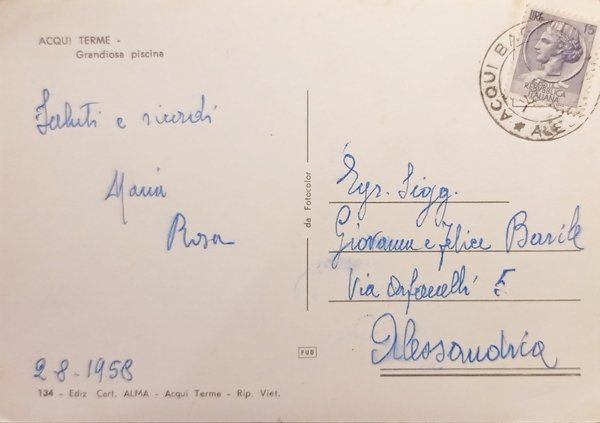 ACQUI TERME -
Grandiosa piscina
Saluti e ricordi
Maria
Rosa
2-8-1958
134 - Ediz Cart. ALMA - Acqui Terme - Rip. Viet.
da Fotocolor
FVD
LIRE 15
REPUBBLICA
ITALIANA
ACQUI
* ALE
Egr. Sigg.
Giovanni e Felice Barile
Via Orfanelli 5
Alessandria